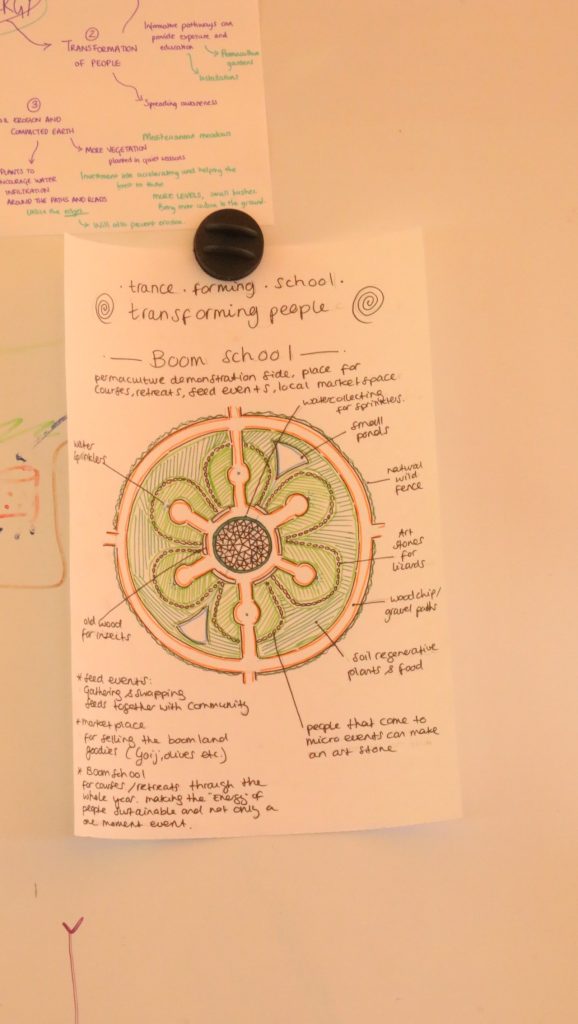 ②
TRANSFORMATION
OF PEOPLE
Informative pathways can
provide exposure and
education
Permaculture
gardens
Installations
Spreading awareness
③
EROSION AND
COMPACTED EARTH
MORE VEGETATION
planted in quiet seasons
Mediterranean meadows
PLANTS TO
ENCOURAGE WATER
INFILTRATION
AROUND THE PATHS AND ROADS
Investment into accelerating and helping the
land to thrive
MORE LEVELS, small bushes
Bring more carbon to the ground.
Utilise the edges
Will also prevent erosion.
· trance · forming · school ·
transforming people
— BOOM School —
permaculture demonstration side, place for
courses, retreats, seed events, local marketspace
watercollecting
for sprinklers.
small
ponds
water
sprinklers
natural
wild
fence
Art
stones
for
lizards
woodchip/
gravel paths
old wood
for insects
soil regenerative
plants & food
people that come to
micro events can make
an art stone
* seed events:
Gathering & swapping
seeds together with community
* market place
for selling the boomland
goodies (Goij, olives etc.)
* Boomschool
for courses / retreats through the
whole year. making the "Energy" of
people sustainable and not only a
one moment event.